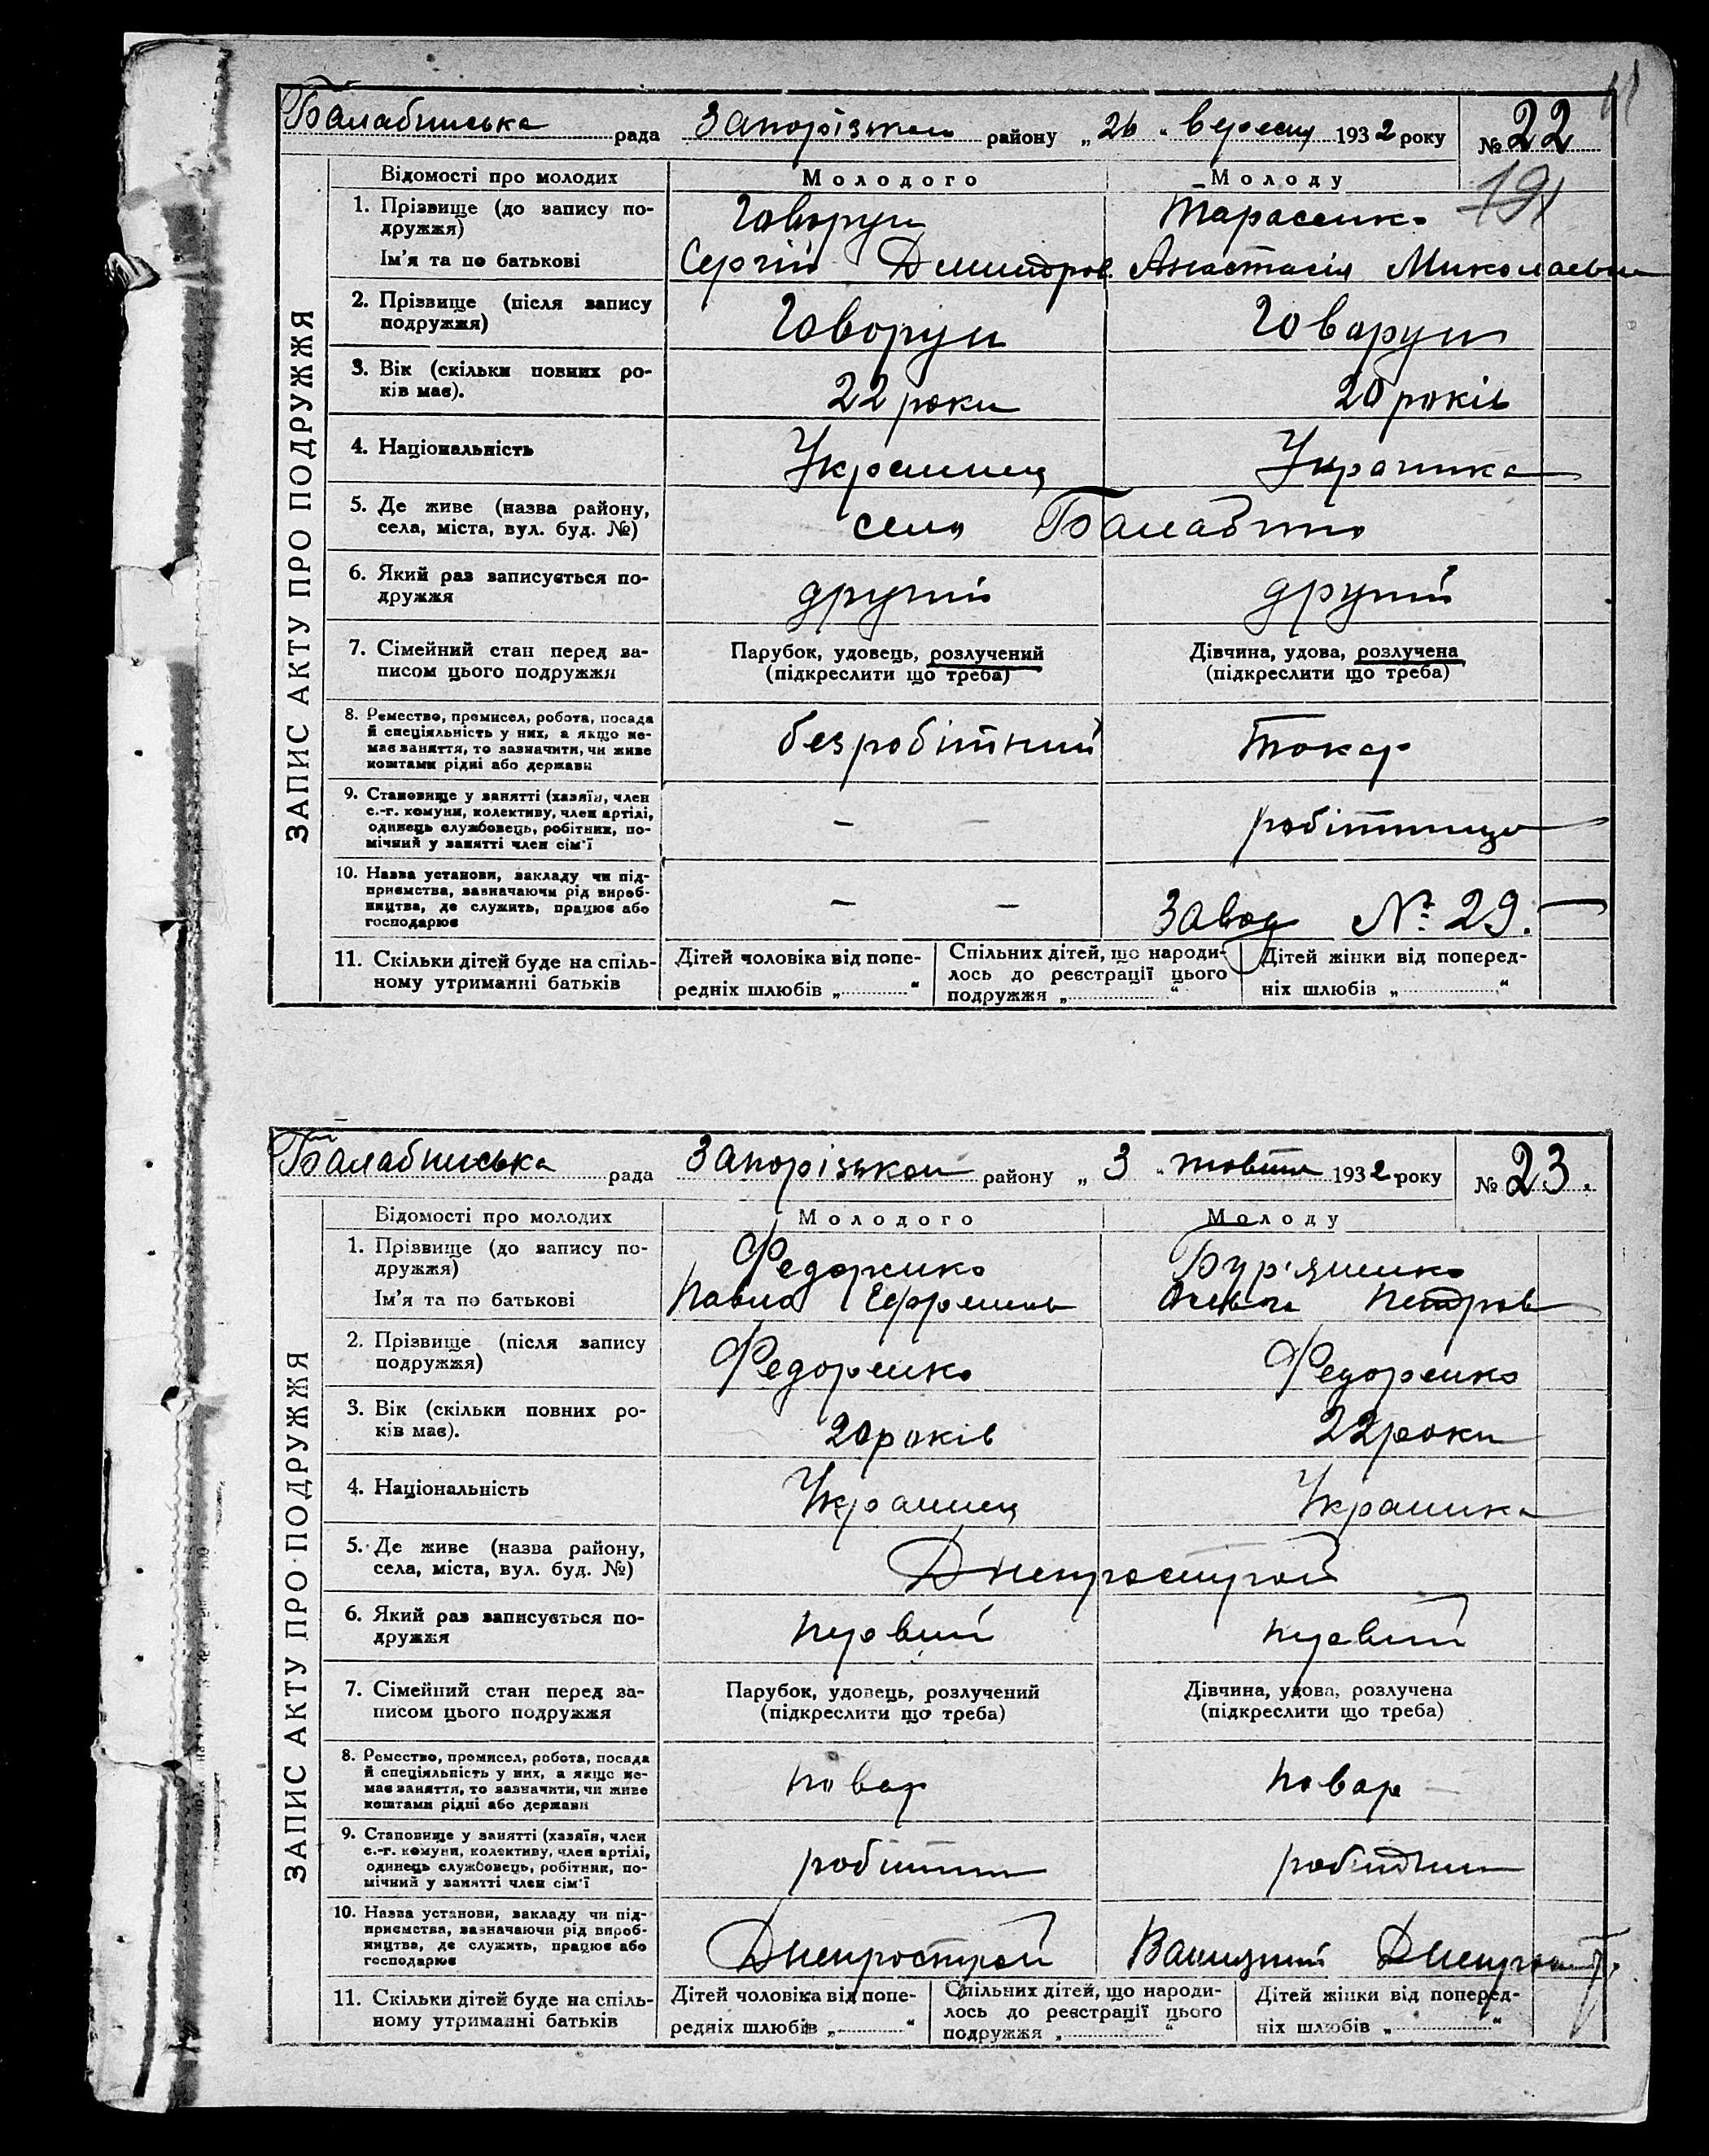 Балабинська рада Запорізького району „26 „ вересня 1932 року № 22
191
Відомості про молодих Молодого Молоду
1. Прізвище (до запису по-
дружжя) Говорун Тарасенко
Ім'я та по батькові Сергій Дмитров. Анастасія Миколаевна
2. Прізвище (після запису
подружжя) Говорун Говарун
3. Вік (скільки повних ро-
ків має). 22 роки 20 років
4. Національність Украинец Украинка
5. Де живе (назва району,
села, міста, вул. буд. №) село Балабино
6. Який раз записується по-
дружжя другий другий
7. Сімейний стан перед за-
писом цього подружжя
Парубок, удовець, розлучений
(підкреслити що треба)
Дівчина, удова, розлучена
(підкреслити що треба)
8. Ремество, промисел, робота, посада
й спеціяльність у них, а якщо не-
має заняття, то зазначити, чи живе
коштами рідні або держави
безробітний Токар
9. Становище у занятті (хазяїн, член
с.-г. комуни, колективу, член артілі,
одинець службовець, робітник, по-
мічний у занятті член сім'ї
— — робітниця
10. Назва установи, закладу чи під-
приємства, зазначаючи рід вироб-
ництва, де служить, працює або
господарює
— — Завод № 29.
11. Скільки дітей буде на спіль-
ному утриманні батьків
Дітей чоловіка від попе-
редніх шлюбів „ “
Спільних дітей, що народи-
лось до реєстрації цього
подружжя „ “
Дітей жінки від поперед-
ніх шлюбів „ “
ЗАПИС АКТУ ПРО ПОДРУЖЖЯ
Балабинська рада Запорізького району „ 3 „ жовтня 1932 року № 23.
Відомості про молодих Молодого Молоду
1. Прізвище (до запису по-
дружжя) Федоренко Бур'яненко
Ім'я та по батькові Павло Ефремов Ольга Петров
2. Прізвище (після запису
подружжя) Федоренко Федоренко
3. Вік (скільки повних ро-
ків має). 20 років 22 роки
4. Національність Украинец Украинка
5. Де живе (назва району,
села, міста, вул. буд. №) Днепрострой
6. Який раз записується по-
дружжя первий первий
7. Сімейний стан перед за-
писом цього подружжя
Парубок, удовець, розлучений
(підкреслити що треба)
Дівчина, удова, розлучена
(підкреслити що треба)
8. Ремество, промисел, робота, посада
й спеціяльність у них, а якщо не-
має заняття, то зазначити, чи живе
коштами рідні або держави
повар повар
9. Становище у занятті (хазяїн, член
с.-г. комуни, колективу, член артілі,
одинець службовець, робітник, по-
мічний у занятті член сім'ї
робітник робітник
10. Назва установи, закладу чи під-
приємства, зазначаючи рід вироб-
ництва, де служить, працює або
господарює
Днепрострой
11. Скільки дітей буде на спіль-
ному утриманні батьків
Дітей чоловіка від попе-
редніх шлюбів „ “
Спільних дітей, що народи-
лось до реєстрації цього
подружжя „ “
Дітей жінки від поперед-
ніх шлюбів „ “
ЗАПИС АКТУ ПРО ПОДРУЖЖЯ